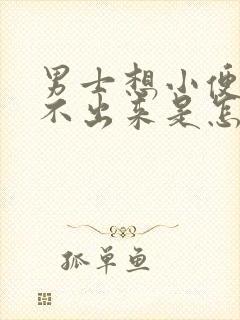 男士想小便
不出来是怎
孤单鱼